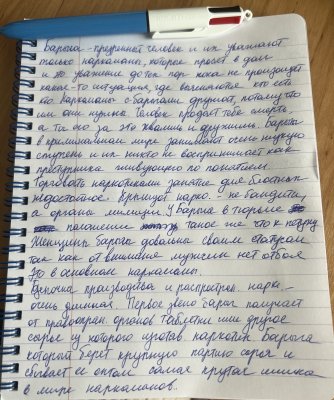 Барыга - презренный человек и их уважают
только наркоманы, которые просят в долг
и это уважение до тех пор пока не произойдет
какая-то ситуация, где выясняется кто есть
кто Наркоманы с барыгами дружат, потому что
им они нужны. Человек продает тебе смерть
а ты его за это хвалишь и дружишь. Барыги
в криминальном мире занимают очень низкую
ступень и их никто не воспринимает как
преступника живущего по понятиям.
Торговать наркотиками занятие для блатных
недостойное. Крышуют нарко. - не бандиты,
а органы милиции. У Барыга в тюрьме
положение такое же что к
Женщины барыги довольны своим статусом
так как от внимания мужчин нет отбоя
Это в основном наркоманы.
Цепочка производства и распростран. нарк.
очень длинная. Первое звено барыг получает
от правоохран. органов таблетки или другое
сырье из которого изготав наркотик. Барыга
который берет крупную партию сырья и
сбывает ее оптом самая крутая шишка
в мире наркоманов.